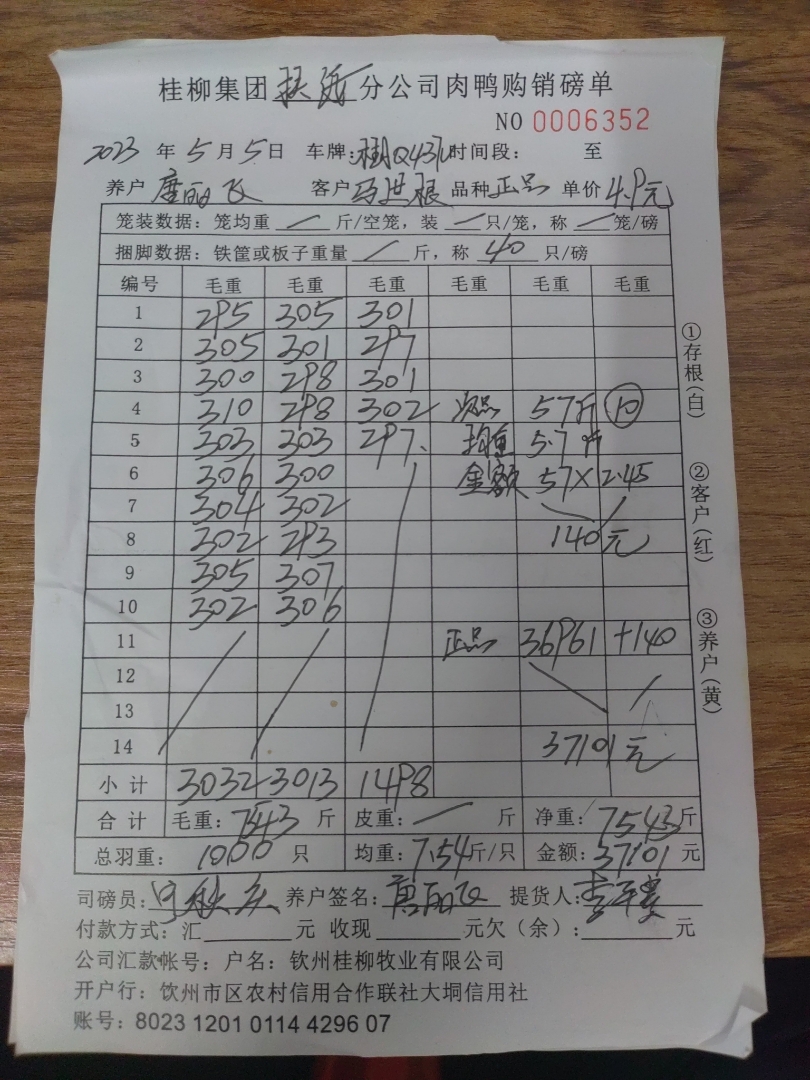 桂柳集团扶绥分公司肉鸭购销磅单
NO 0006352
2023 年 5 月 5 日 车牌: Q437 时间段: 至
养户 唐丽飞 客户 马世根 品种 正品 单价 4.9元
笼装数据: 笼均重 / 斤/空笼, 装 / 只/笼, 称 / 笼/磅
捆脚数据: 铁筐或板子重量 / 斤, 称 40 只/磅
编号 毛重 毛重 毛重 毛重 毛重 毛重
1 295 305 301
2 305 301 297
3 300 298 301
4 310 298 302 次品 57斤 10
5 303 303 297 均重 5.7斤
6 306 300 金额 57× 2.45
7 304 302
8 302 293 140元
9 305 307
10 302 306
11 正品 36961 +140
12
13
14 37101元
小计 3032 3013 1498
合计 毛重: 7543 斤 皮重: / 斤 净重: 7543 斤
总羽重: 1000 只 均重: 7.54 斤/只 金额: 37101 元
司磅员: 养户签名: 唐丽飞 提货人:
付款方式: 汇 元 收现 元欠(余): 元
公司汇款帐号: 户名: 钦州桂柳牧业有限公司
开户行: 钦州市区农村信用合作联社大垌信用社
账号: 8023 1201 0114 4296 07
①存根(白)
②客户(红)
③养户(黄)